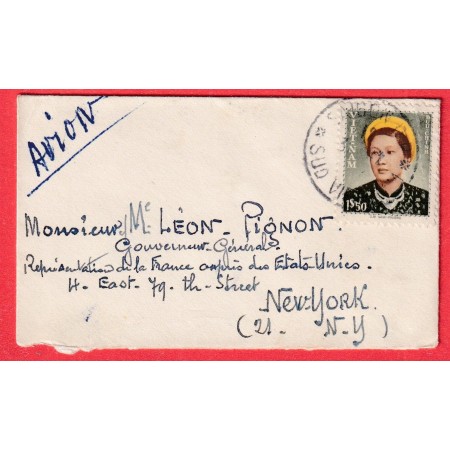 AVION
VIET-NAM
BUU-CHINH
1$50
SUD
Monsieur Mc LÉON - PIGNON.
Gouverneur-Général
Représentation de la France auprès des Etats-Unies.
4. East. 79. th-Street
New-YORK.
(21. N-Y)